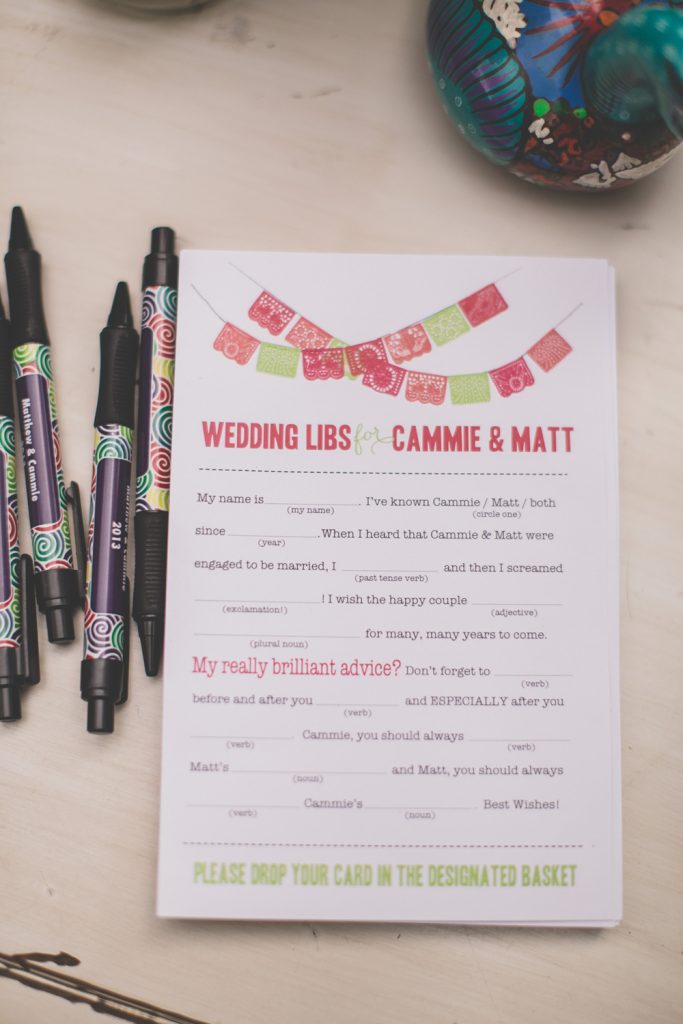 WEDDING LIBS for CAMMIE & MATT
My name is . I've known Cammie / Matt / both
(my name) (circle one)
since .When I heard that Cammie & Matt were
(year)
engaged to be married, I and then I screamed
(past tense verb)
! I wish the happy couple
(exclamation!) (adjective)
for many, many years to come.
(plural noun)
My really brilliant advice? Don't forget to
(verb)
before and after you and ESPECIALLY after you
(verb)
Cammie, you should always
(verb) (verb)
Matt's and Matt, you should always
(noun)
Cammie's . Best Wishes!
(verb) (noun)
PLEASE DROP YOUR CARD IN THE DESIGNATED BASKET
Matthew & Cammie
2013
Matthew & Cammie